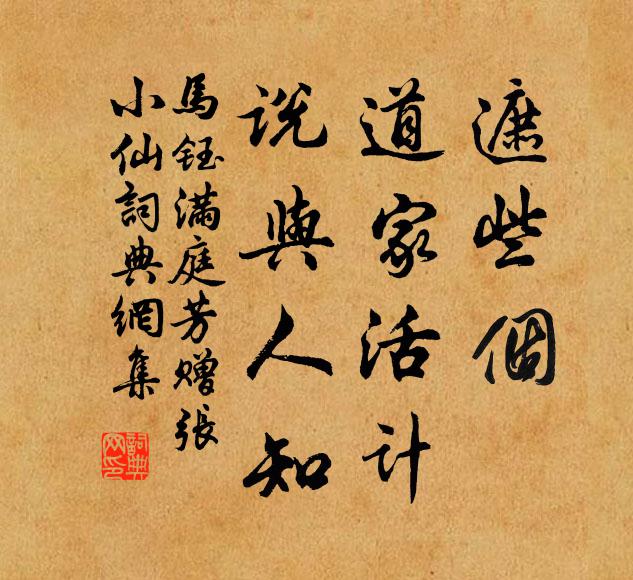 遮些個
道家活計
說與人知
馬鈺满庭芳赠張
小仙詞典網集
詞典网印